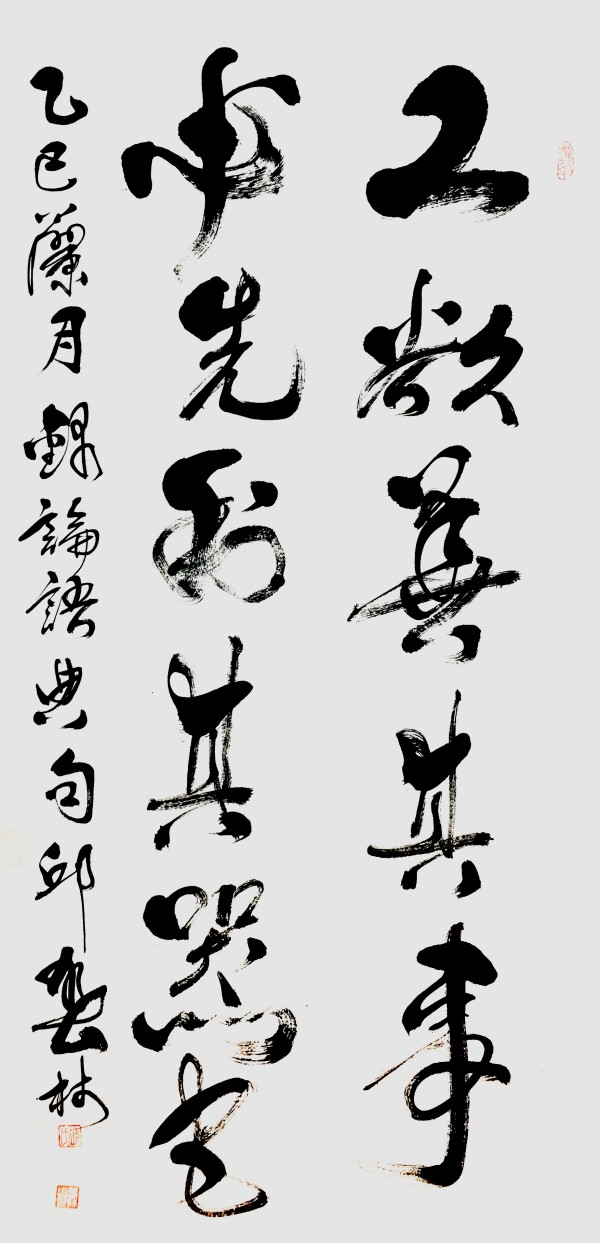 工欲善其事
必先利其器也
乙巳蘭月錄論語典句邱林